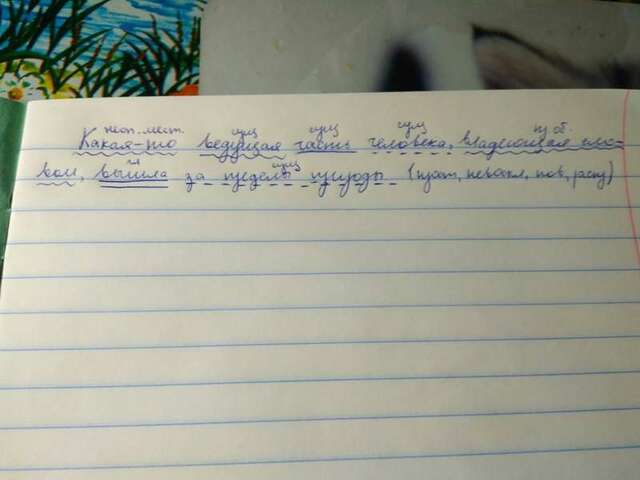 неоп. мест. сущ сущ сущ пр. об.
Какая-то ведущая часть человека, владеющая сло-
гл сущ
вом, вышла за пределы природы (прост, невоскл, пов, расп)